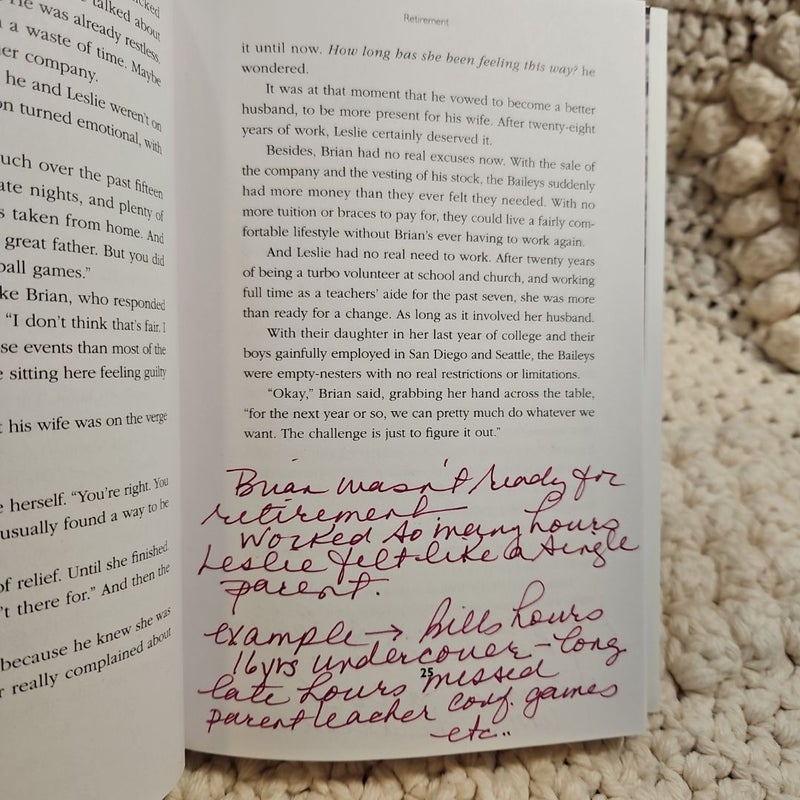 talked about
He was already restless.
a waste of time. Maybe
company.
he and Leslie weren't on
turned emotional, with
uch over the past fifteen
ate nights, and plenty of
s taken from home. And
great father. But you did
ball games."
ke Brian, who responded
"I don't think that's fair. I
se events than most of the
sitting here feeling guilty
his wife was on the verge
herself. "You're right. You
usually found a way to be
of relief. Until she finished
't there for." And then the
because he knew she was
r really complained about
Retirement
it until now. How long has she been feeling this way? he
wondered.
It was at that moment that he vowed to become a better
husband, to be more present for his wife. After twenty-eight
years of work, Leslie certainly deserved it.
Besides, Brian had no real excuses now. With the sale of
the company and the vesting of his stock, the Baileys suddenly
had more money than they ever felt they needed. With no
more tuition or braces to pay for, they could live a fairly com-
fortable lifestyle without Brian's ever having to work again.
And Leslie had no real need to work. After twenty years
of being a turbo volunteer at school and church, and working
full time as a teachers' aide for the past seven, she was more
than ready for a change. As long as it involved her husband.
With their daughter in her last year of college and their
boys gainfully employed in San Diego and Seattle, the Baileys
were empty-nesters with no real restrictions or limitations.
"Okay," Brian said, grabbing her hand across the table,
"for the next year or so, we can pretty much do whatever we
want. The challenge is just to figure it out."
Brian wasn't ready for
retirement
Worked so many hours
Leslie felt like a single
parent.
example → Bills hours
16yrs undercover - long
late hours missed
25
parent teacher conf. games
etc..